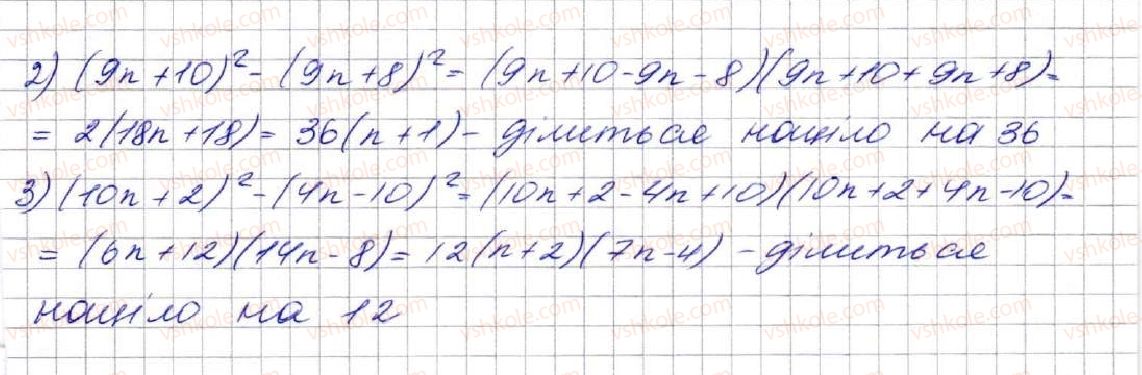 2) (9n+10)² - (9n+8)² = (9n+10-9n-8)(9n+10+9n+8)=
= 2(18n+18) = 36(n+1) - ділиться націло на 36
3) (10n+2)² - (4n-10)² = (10n+2-4n+10)(10n+2+4n-10)=
= (6n+12)(14n-8) = 12(n+2)(7n-4) - ділиться
націло на 12